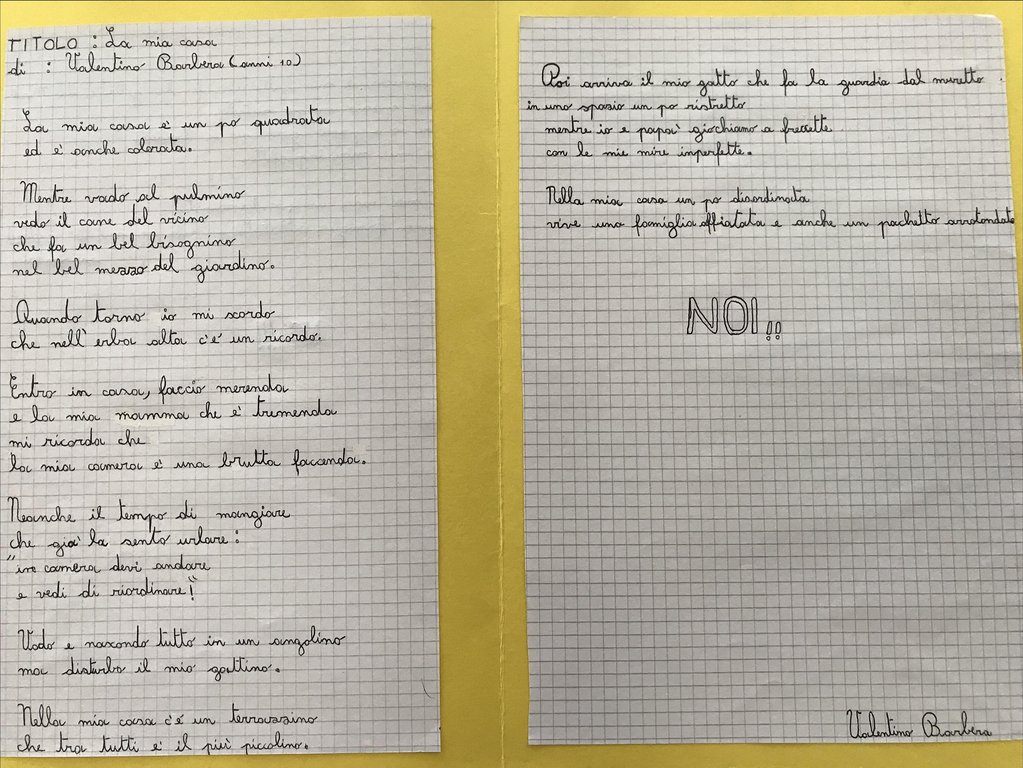 TITOLO : La mia casa
di : Valentino Barbera (anni 10)
La mia casa è un po quadrata
ed è anche colorata.
Mentre vado al pulmino
vedo il cane del vicino
che fa un bel bisognino
nel bel mezzo del giardino.
Quando torno io mi scordo
che nell'erba alta c'è un ricordo.
Entro in casa, faccio merenda
e la mia mamma che è tremenda
mi ricorda che
la mia camera è una brutta faccenda.
Neanche il tempo di mangiare
che già la sento urlare:
"in camera devi andare
e vedi di riordinare!"
Vado e nascondo tutto in un angolino
ma disturbo il mio gattino.
Nella mia casa c'é un terrazzino
che tra tutti è il più piccolino.
Poi arriva il mio gatto che fa la guardia dal muretto
in uno spazio un po ristretto
mentre io e papà giochiamo a freccette
con le mie mire inperfette.
Nella mia casa un po disordinata
vive una famiglia affiatata e anche un pachetto arrotondato
NOI!!
Valentino Barbera